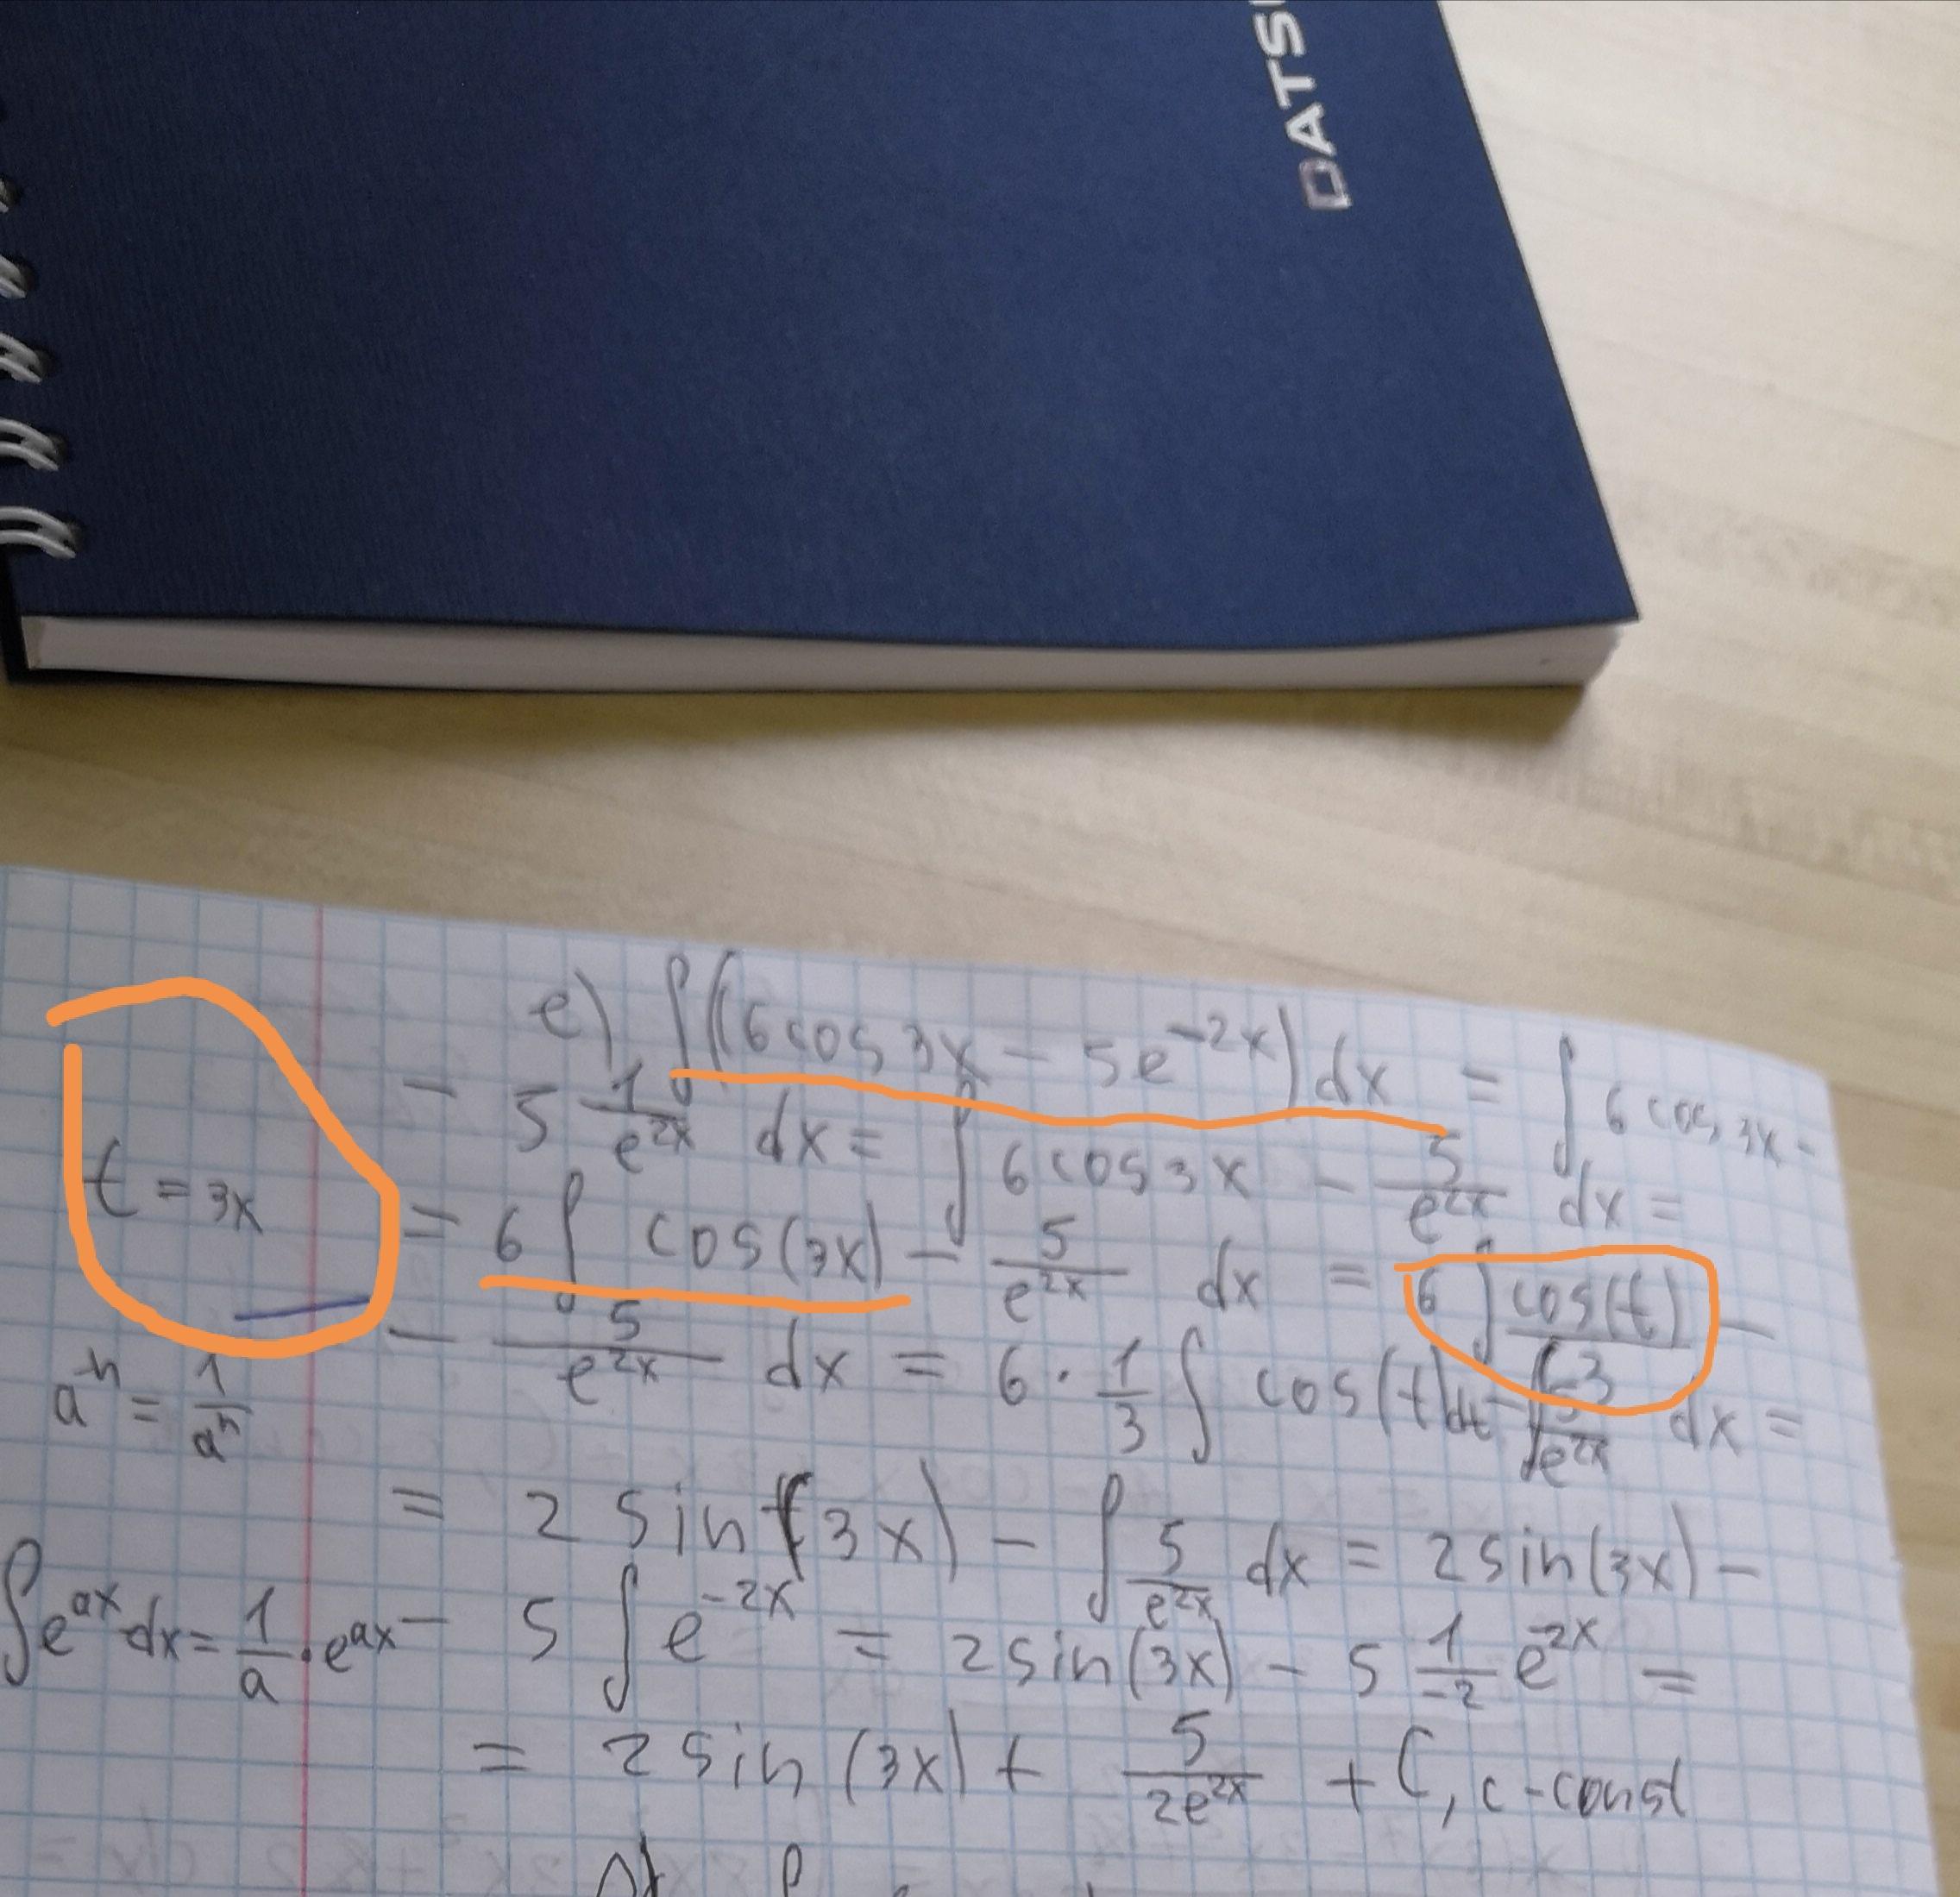 DATS
e) ∫(6cos3x - 5e^{-2x})dx = ∫ 6cos3x -
- 5 \frac{1}{e^{2x}} dx = ∫ 6cos3x - \frac{5}{e^{2x}} dx =
t = 3x
= 6 ∫ cos(3x) - \frac{5}{e^{2x}} dx = 6 ∫ \frac{cos(t)}{3} -
- \frac{5}{e^{2x}} dx = 6 · \frac{1}{3} ∫ cos(t)dt - ∫ \frac{5}{e^{2x}} dx =
a^{-n} = \frac{1}{a^n}
= 2 sin(3x) - ∫ \frac{5}{e^{2x}} dx = 2sin(3x) -
∫e^{ax} dx = \frac{1}{a} · e^{ax}
- 5 ∫ e^{-2x} = 2sin(3x) - 5 \frac{1}{-2} e^{-2x} =
= 2 sin (3x) + \frac{5}{2e^{2x}} + C, c - const